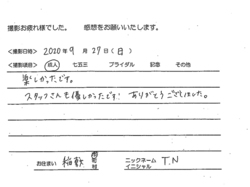 撮影お疲れ様でした。 感想をお願いいたします。
<撮影日時> 2020年 9月 27日(日)
<撮影項目> 成人 七五三 ブライダル 記念 その他
楽しかったです。
スタッフさんも優しかったです! ありがとうございました。
お住まい 稲敷 ニックネーム イニシャル T.N